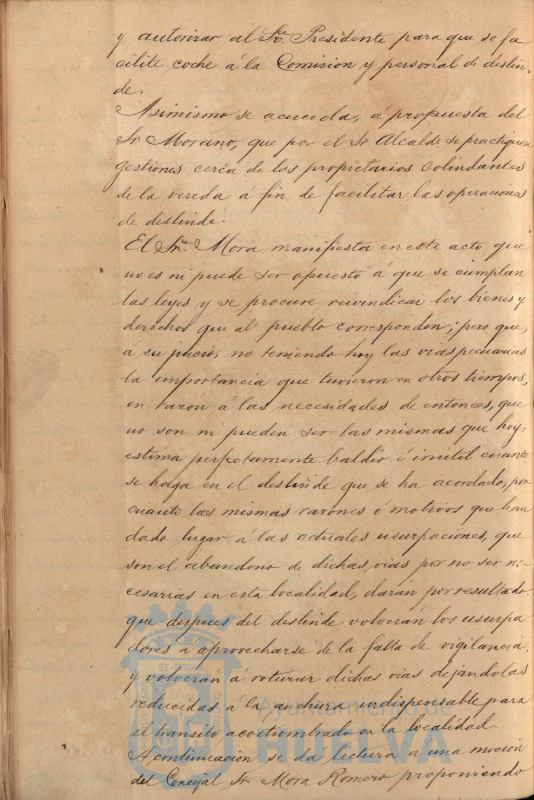 y autorizar al Sr. Presidente para que se fa
cilite coche á la Comision y personal de deslin-
de.
Asimismo se acuerda, á propuesta del
Sr Morano, que por el Sr Alcalde se practiquen
gestiones cerca de los propietarios colindantes
de la vereda á fin de facilitar las operaciones
de deslinde.
El Sr. Mora manifiesta en este acto, que
no es ni puede ser opuesto á que se cumplan
las leyes y se procure reivindicar los bienes y
derechos que al pueblo corresponden; pero que,
á su juicio, no teniendo hoy las vias pecuarias
la importancia que tuvieron en otros tiempos,
en razón á las necesidades de entonces, que
no son ni pueden ser las mismas que hoy,
estima perfectamente baldío é inútil cuanto
se haga en el deslinde que se ha acordado, por
cuanto las mismas razones ó motivos que han
dado lugar á las actuales usurpaciones, que
son el abandono de dichas vias por no ser ne-
cesarias en esta localidad, darán por resultado
que despues del deslinde volverán los usurpa
dores á aprovecharse de la falta de vigilancia,
y volverán á roturar dichas vias dejandolas
reducidas á la anchura indispensable para
el tránsito acostumbrado en la localidad
A continuacion se da lectura á una mocion
del Concejal Sr Mora Romero proponiendo
Ayuntamiento de
HUELVA